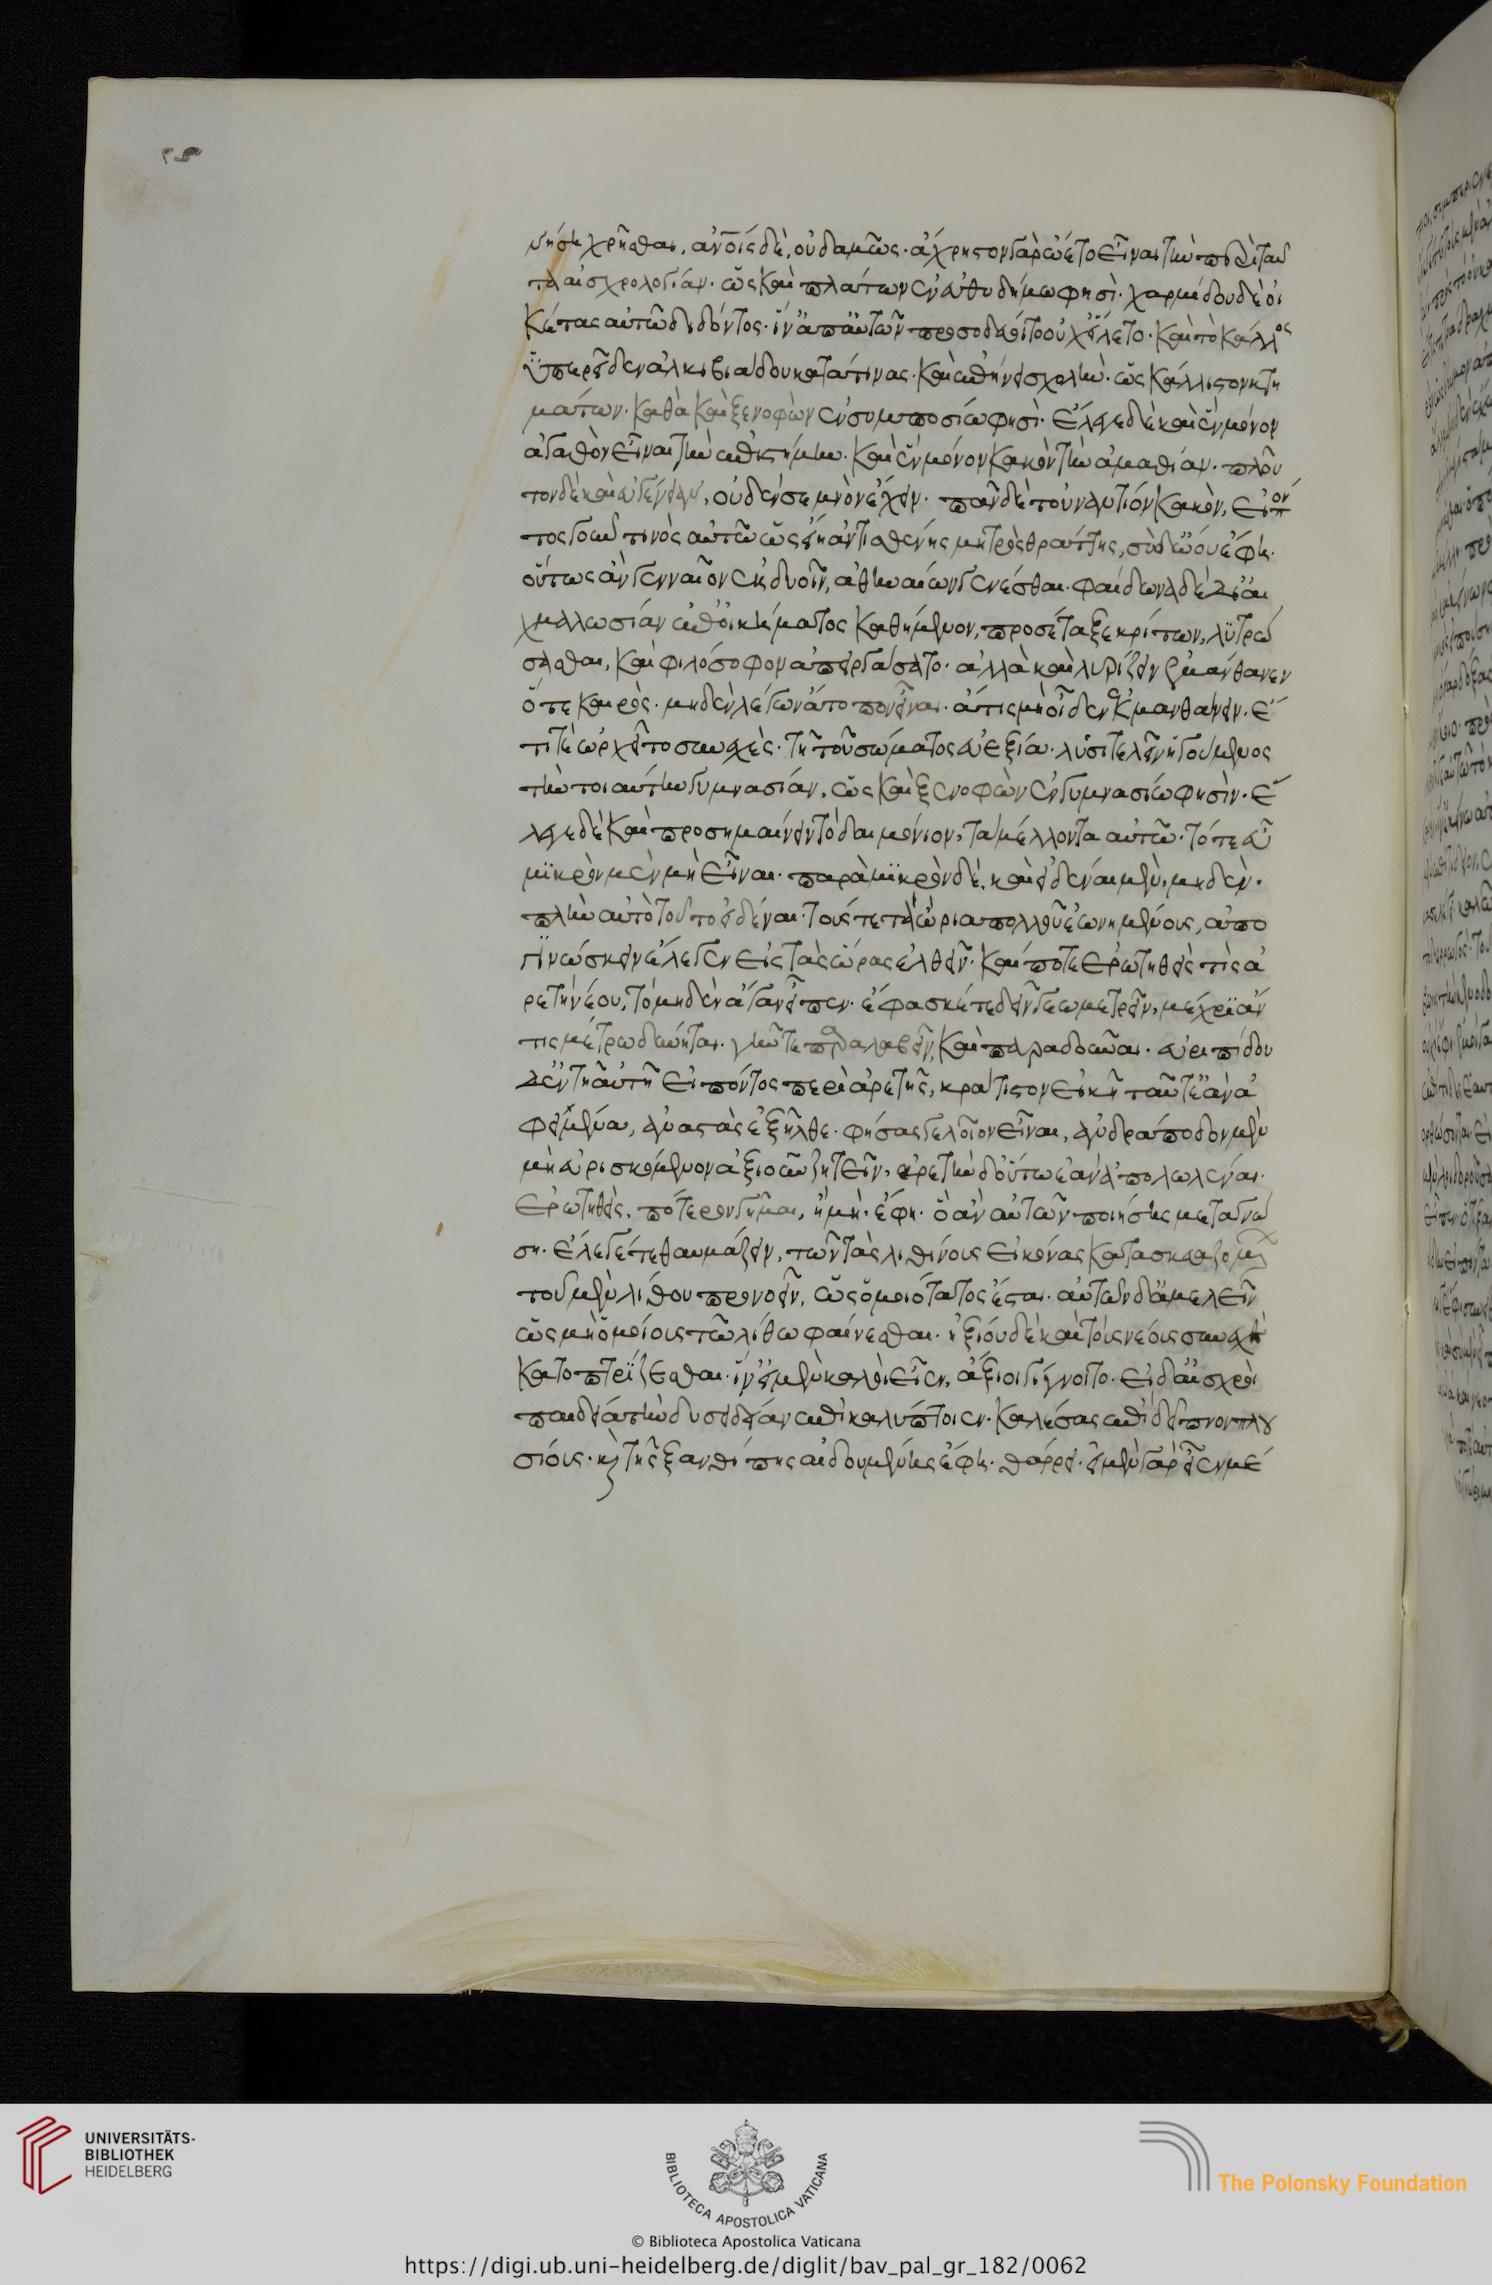 νήσῃ χρῆσθαι, ἀνοις δὲ, οὐδαμῶς. ἄχρηστον γὰρ ᾤετο εἶναι τὴν περὶ ταῦ
τα αἰσχρολογίαν. ὡς καὶ πλάτων ἐν εὐθυδήμω φησὶ. χαρμίδου δὲ οἰ
κέτας αὐτῶ διδόντος. ἵν ἀπ αὐτῶν προσοδεύοιτο οὐχ εἵλετο. καὶ τὸ κάλλος
ὑπερεῖδεν ἀλκιβιάδου κατά τινας. καὶ ἐπήνει σχολὴν. ὡς κάλλιστον κτη
μάτων. καθὰ καὶ ξενοφῶν ἐν συμποσίω φησὶ. ἔλεγε δὲ καὶ ἓν μόνον
ἀγαθὸν εἶναι τὴν ἐπιστήμην. καὶ ἓν μόνον κακὸν τὴν ἀμαθίαν. πλοῦ
τον δὲ καὶ εὐγένειαν, οὐδὲν σεμνὸν ἔχειν. πᾶν δὲ τοὐναντίον κακὸν, εἰπόν
τος γοῦν τινὸς αὐτῶ ὡς εἴη ἀντισθένης μητρὸς θράττης, σὺ δ ὤου ἔφη.
οὕτως ἂν γενναῖον ἐκ δυοῖν, ἀθηναίων γενέσθαι. φαίδωνα δὲ δι αἰ
χμαλωσίαν ἐπ οἰκήματος καθήμενον, προσέταξε κρίτωνι, λυτρώ
σασθαι, καὶ φιλόσοφον ἀπειργάσατο. ἀλλὰ καὶ λυρίζειν ἐμάνθανεν
ὅτε καιρὸς. μηδὲν λέγων ἄτοπον εἶναι. ἅ τις μὴ οἶδεν ἐκμανθάνειν. ἔ
τι τὲ ὠρχεῖτο συνεχὲς. τῆ τοῦ σώματος εὐεξία. λυσιτελεῖν ἡγούμενος
τὴν τοιαύτην γυμνασίαν, ὡς καὶ ξενοφῶν ἐν γυμνασίω φησὶν. ἔ
λεγε δὲ καὶ προσημαίνειν τὸ δαιμόνιον, τὰ μέλλοντα αὐτῶ. τό τε εὖ
μικρὸν μὲν μὴ εἶναι. παρὰ μικρὸν δὲ. καὶ εἰδέναι μὲν, μηδὲν.
πλὴν αὐτὸ τοῦτο εἰδέναι. τούς τε τὰ ἄωρια πολλοῦ ἐωνημένους, ἀπο
γινώσκειν ἔλεγεν εἰς τὰς ὥρας ἐλθεῖν. καί ποτε ἐρωτηθεὶς τίς ἀ
ρετὴ νέου, τὸ μηδὲν ἄγαν εἶπεν. ἔφασκέ τε δεῖν γεωμετρεῖν, μέχρι ἄν
τις μέτρω δύνηται. γῆν τε παραλαβεῖν, καὶ παραδοῦναι. εὐριπίδου
δ ἐν τῆ αὐτῆ εἰπόντος περὶ ἀρετῆς, κράτιστον εἰκῆ ταῦτ ἐᾶν ἀ
φειμένα, ἀναστὰς ἐξῆλθε. φήσας γελοῖον εἶναι, ἀνδράποδον μὲν
μὴ εὑρισκόμενον ἀξιοῦν ζητεῖν, ἀρετὴν δ οὕτω ἐᾶν ἀπολωλέναι.
ἐρωτηθεὶς, πότερον γῆμαι, ἢ μὴ. ἔφη. ὃ ἂν αὐτῶν ποιήσῃς μεταγνώ
ση. ἔλεγέ τε θαυμάζειν, τῶν τὰς λιθίνους εἰκόνας κατασκευαζομεν
τοῦ μὲν λίθου προνοεῖν, ὡς ὁμοιότατος ἔσται. αὐτῶν δ ἀμελεῖν
ὡς μὴ ὁμοίους τῶ λίθω φαίνεσθαι. ἠξίου δὲ καὶ τοὺς νέους συνεχὲς
κατοπτρίζεσθαι. ἵν εἰ μὲν καλοὶ εἶεν, ἄξιοι γίγνοιντο. εἰ δ αἰσχροὶ
παιδεία τὴν δυσείδειαν ἐπικαλύπτοιεν. καλέσας ἐπὶ δεῖπνον πλου
σίους. καὶ τῆς ξανθίππης αἰδουμένης ἔφη. θάρρει. εἰ μὲν γὰρ εἶεν μέ
UNIVERSITÄTS-
BIBLIOTHEK
HEIDELBERG
BIBLIOTECA APOSTOLICA VATICANA
The Polonsky Foundation
© Biblioteca Apostolica Vaticana
https://digi.ub.uni-heidelberg.de/diglit/bav_pal_gr_182/0062